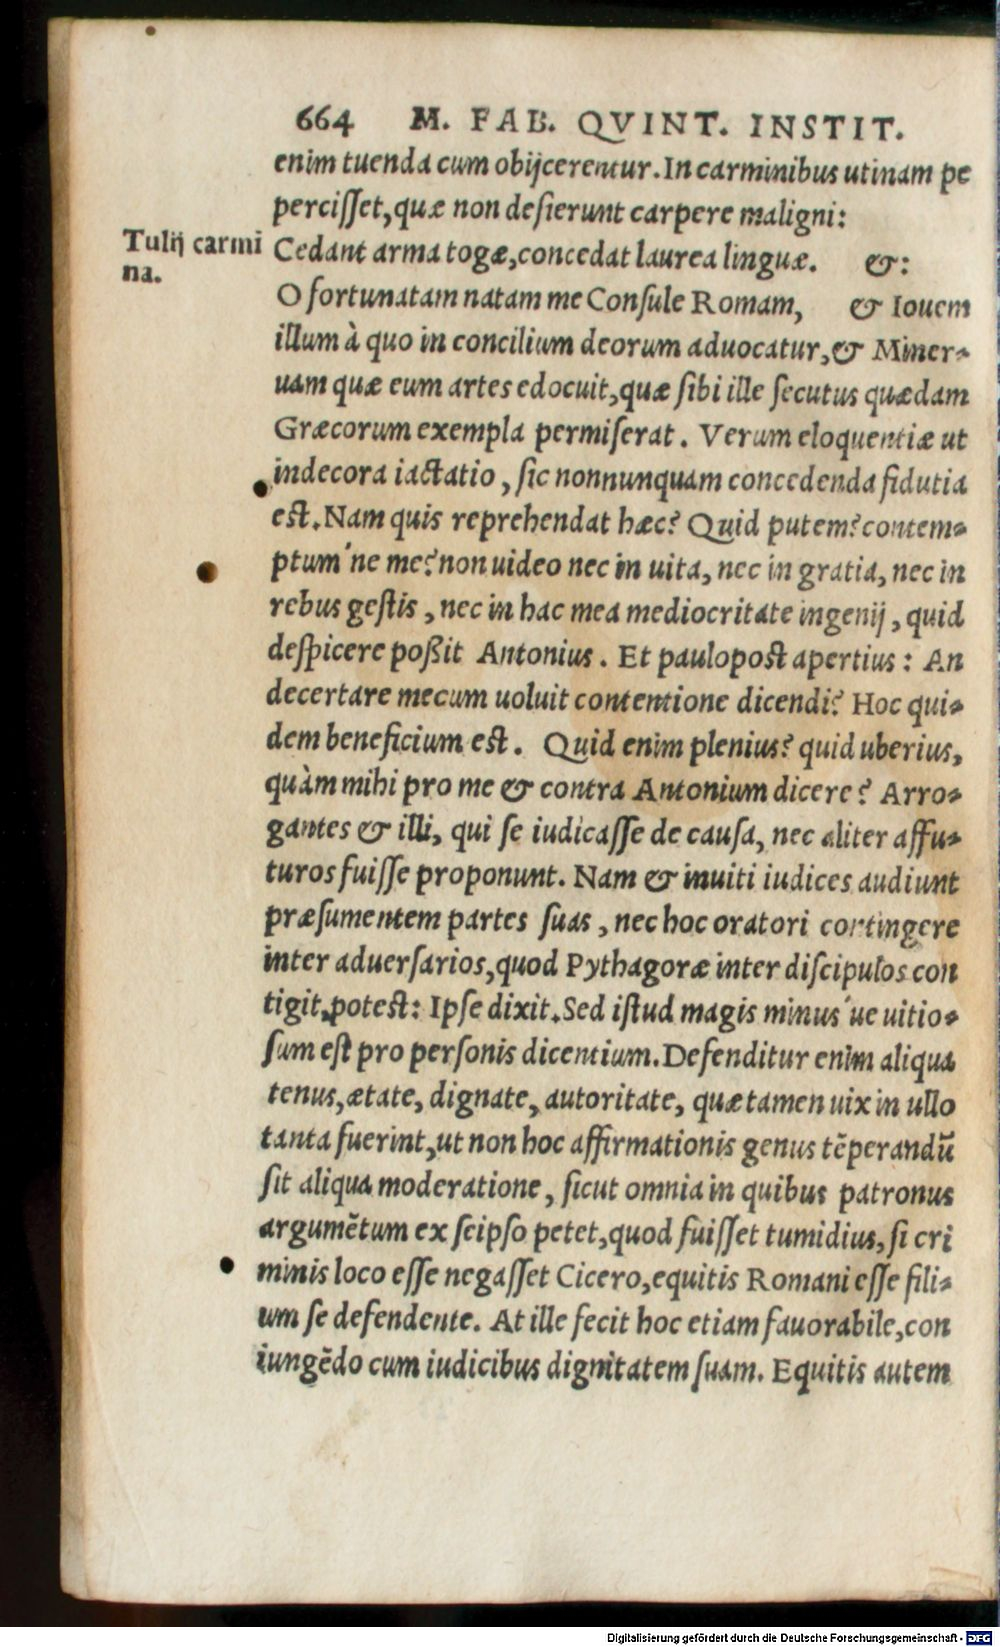 664 M. FAB. QVINT. INSTIT.
enim tuenda cum obijcerentur. In carminibus utinam pe
percisset, quæ non desierunt carpere maligni:
Tulij carmi
na.
Cedant arma togæ, concedat laurea linguæ. &:
O fortunatam natam me Consule Romam, & Iouem
illum à quo in concilium deorum aduocatur, & Miner-
uam quæ eum artes edocuit, quæ sibi ille secutus quædam
Græcorum exempla permiserat. Verum eloquentiæ ut
indecora iactatio, sic nonnunquam concedenda fidutia
est. Nam quis reprehendat hæc? Quid putem? contem-
ptum'ne me? non uideo nec in uita, nec in gratia, nec in
rebus gestis, nec in hac mea mediocritate ingenij, quid
despicere poßit Antonius. Et paulopost apertius: An
decertare mecum uoluit contentione dicendi? Hoc qui-
dem beneficium est. Quid enim plenius? quid uberius,
quàm mihi pro me & contra Antonium dicere? Arro-
gantes & illi, qui se iudicasse de causa, nec aliter affu-
turos fuisse proponunt. Nam & inuiti iudices audiunt
præsumentem partes suas, nec hoc oratori contingere
inter aduersarios, quod Pythagoræ inter discipulos con
tigit, potest: Ipse dixit. Sed istud magis minus'ue uitio-
sum est pro personis dicentium. Defenditur enim aliqua
tenus, ætate, dignate, autoritate, quæ tamen uix in ullo
tanta fuerint, ut non hoc affirmationis genus tēperandū
sit aliqua moderatione, sicut omnia in quibus patronus
argumētum ex seipso petet, quod fuisset tumidius, si cri
minis loco esse negasset Cicero, equitis Romani esse fili-
um se defendente. At ille fecit hoc etiam fauorabile, con
iungēdo cum iudicibus dignitatem suam. Equitis autem
Digitalisierung gefördert durch die Deutsche Forschungsgemeinschaft - DFG